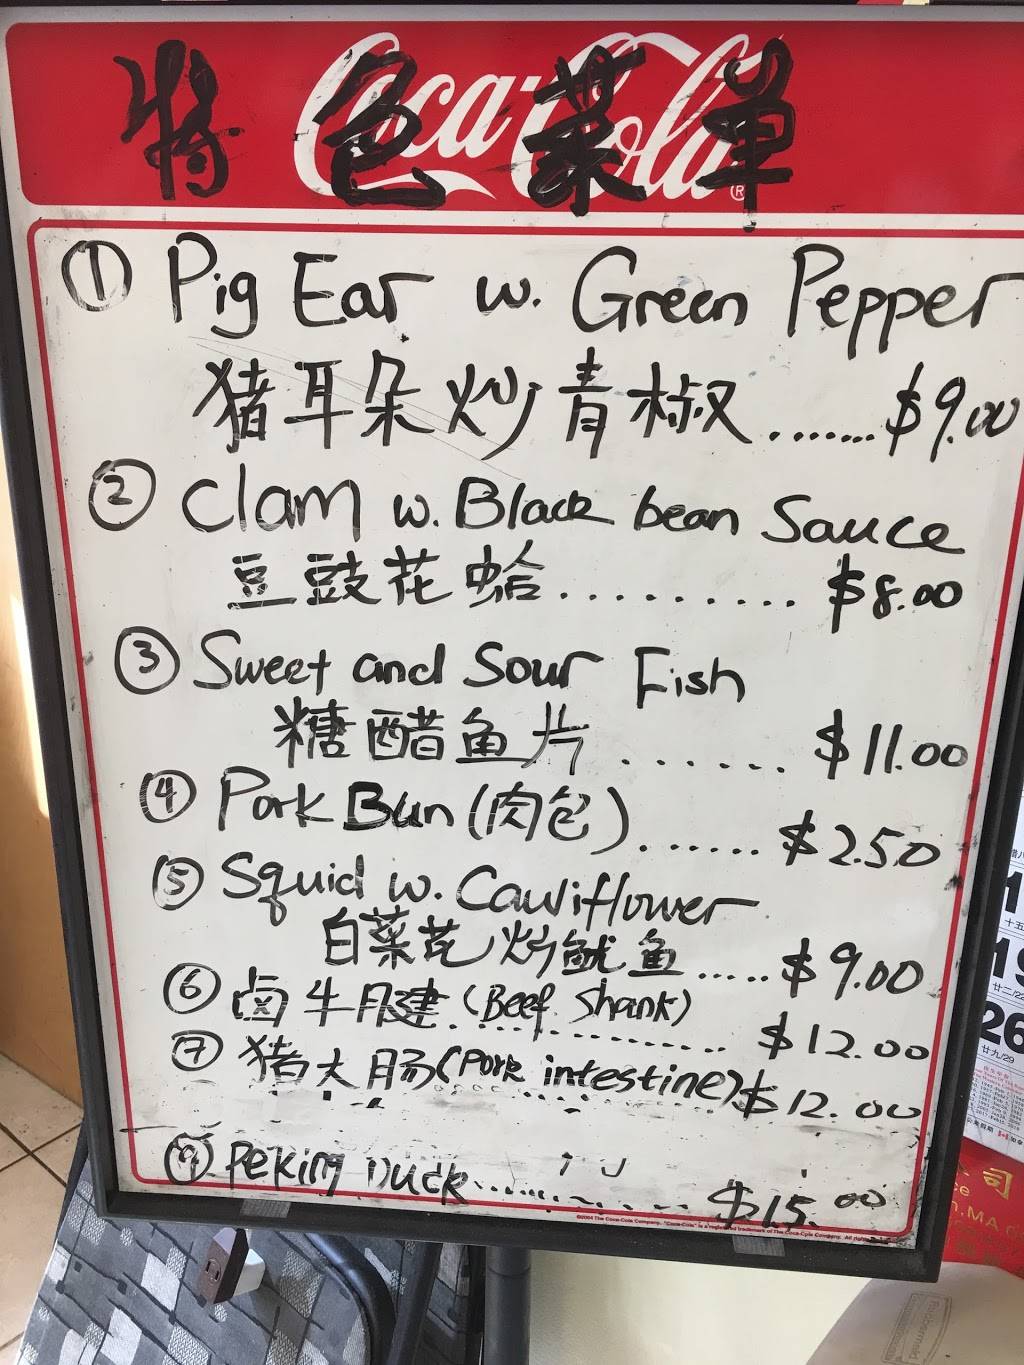 Coca-Cola ®
特色菜单
① Pig Ear w. Green Pepper
猪耳朵炒青椒........ $9.00
② Clam w. Black bean Sauce
豆豉花蛤.......... $8.00
③ Sweet and Sour Fish
糖醋鱼片....... $11.00
④ Pork Bun (肉包)....... $2.50
⑤ Squid w. Cauliflower
白菜花炒鱿鱼..... $9.00
⑥ 卤牛腱 (Beef Shank)
.................. $12.00
⑦ 猪大肠 (Pork intestine) $12.00
⑨ Peking Duck............ $15.00
©2004 The Coca-Cola Company. "Coca-Cola" is a registered trademark of The Coca-Cola Company.
十五
19
廿二/22
26
廿九/29
司